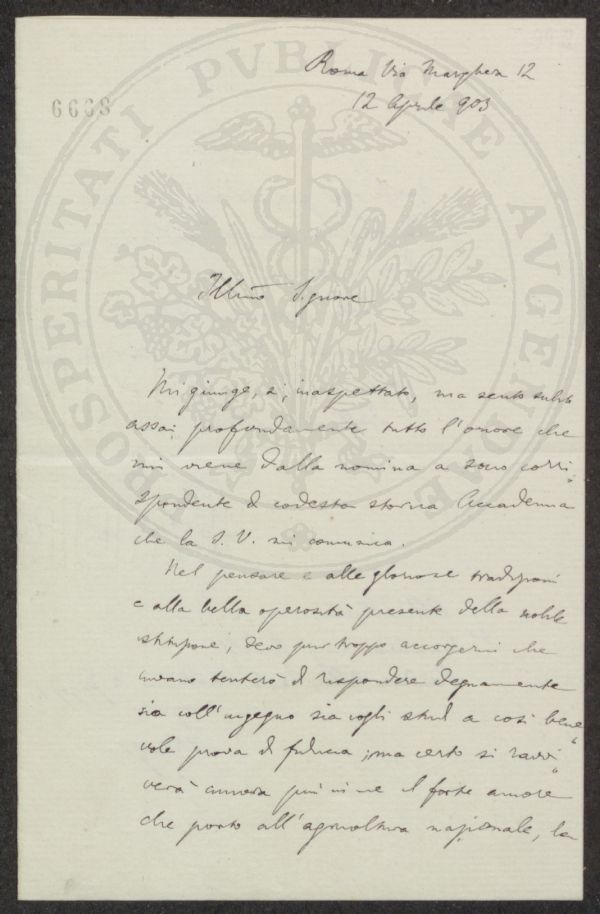 PROSPERITATI PVBLICAE AVGENDAE
6668
Roma Via Marghera 12
12 Aprile 903
Ill.mo Signore
Mi giunge, sì, inaspettato, ma sento subito
assai profondamente tutto l'onore che
mi viene dalla nomina a socio corri„
spondente di codesta storica Accademia
che la S. V. mi comunica.
Nel pensare e alle gloriose tradizioni
e alla bella operosità presente della nobile
istituzione, devo purtroppo accorgermi che
invano tenterò di rispondere degnamente
sia coll'ingegno sia cogli studi a così bene„
vole prova di fiducia; ma certo si ravvi„
verà ancora più in me il forte amore
che porto all'agricoltura nazionale, la